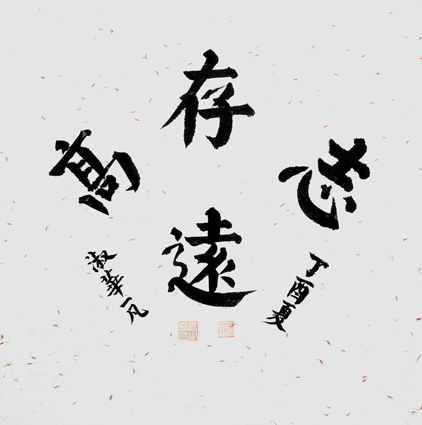 志
存
高
遠
丁酉夏
淑華一凡